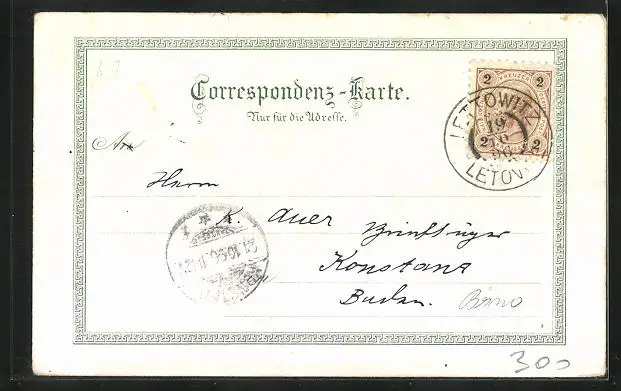 Correspondenz-Karte.
Nur für die Adresse.
2 KREUZER 2
2 2
LETTOWITZ
19
LETOV
An
Herrn
K. Auer
Konstanz
Baden. Brno
300